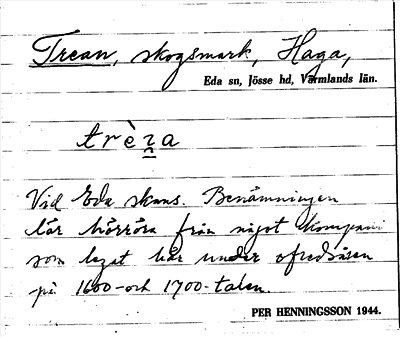 Trean, skogsmark, Haga,
Eda sn, Jösse hd, Värmlands län.
trèṉa
Vid Eda skans. Benämningen
lär härröra från något kompani
som legat här under ofredsåren
på 1600- och 1700-talen.
PER HENNINGSSON 1944.